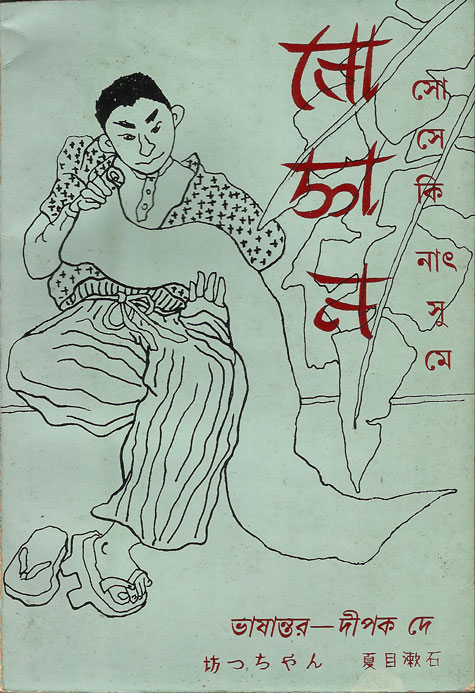 বো
চ্চা
ন
সো
সে
কি
নাৎ
সু
মে
ভাষান্তর—দীপক দে
坊っちゃん 夏目漱石